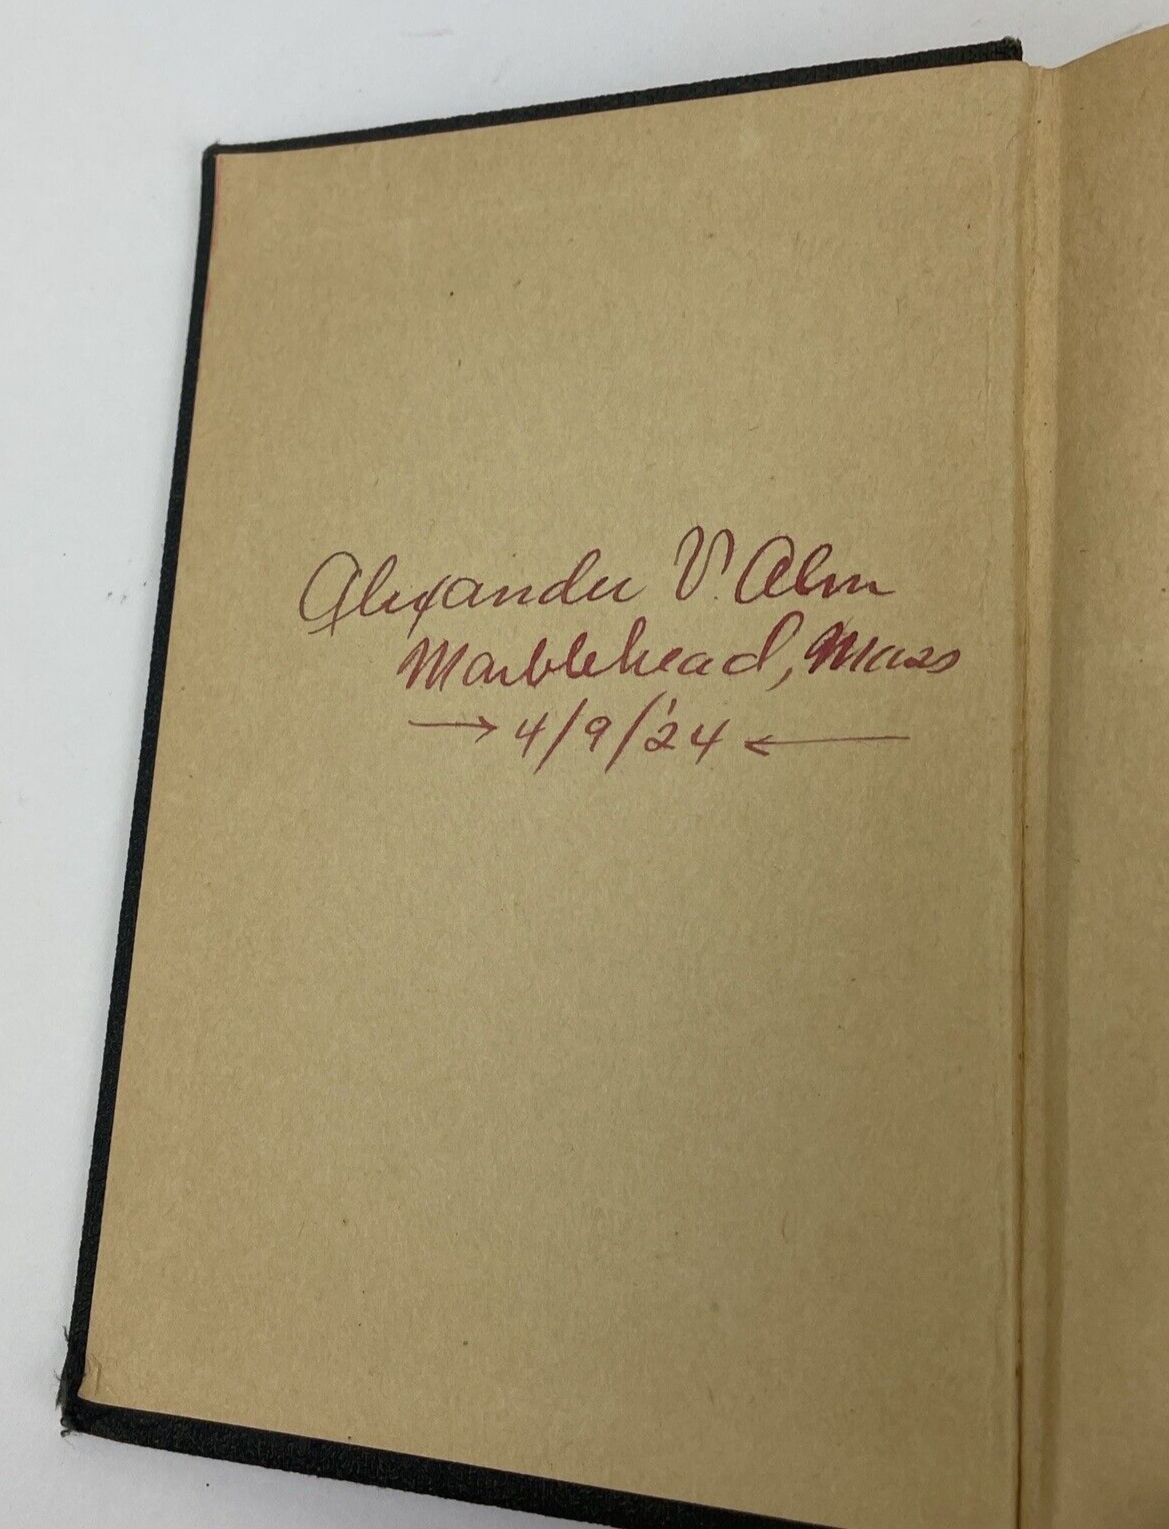 Alexander V. Alm
Marblehead, Mass
→ 4/9/'24 ←